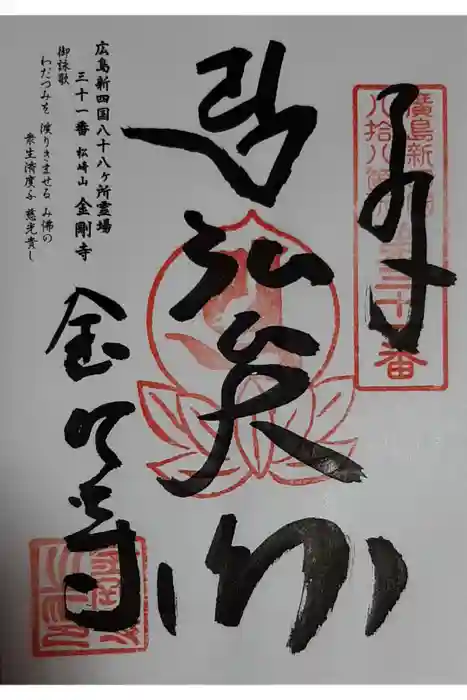 奉拝
廣島新四国
八拾八箇所第三十一番
弘法大師
広島新四国八十八ヶ所霊場
三十一番 松崎山 金剛寺
御詠歌
わだつみを 渡りきませる み佛の
衆生済度ぞ 慈光貴し
金剛寺